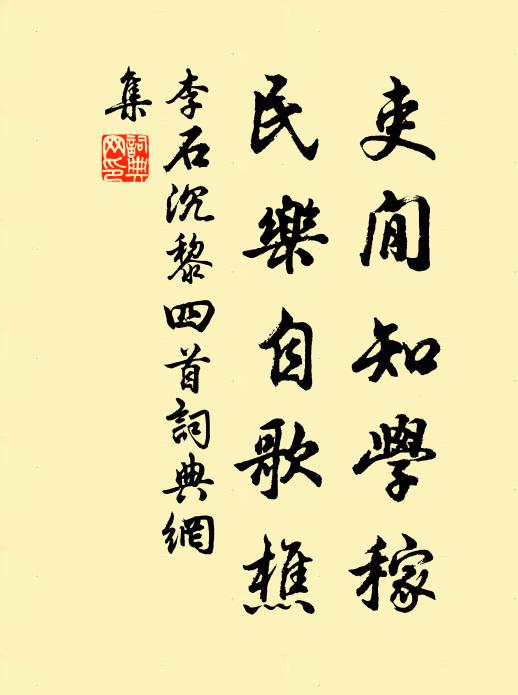 吏閒知學稼
民樂自歌樵
李石沉黎四首詞典網
集
詞典网印